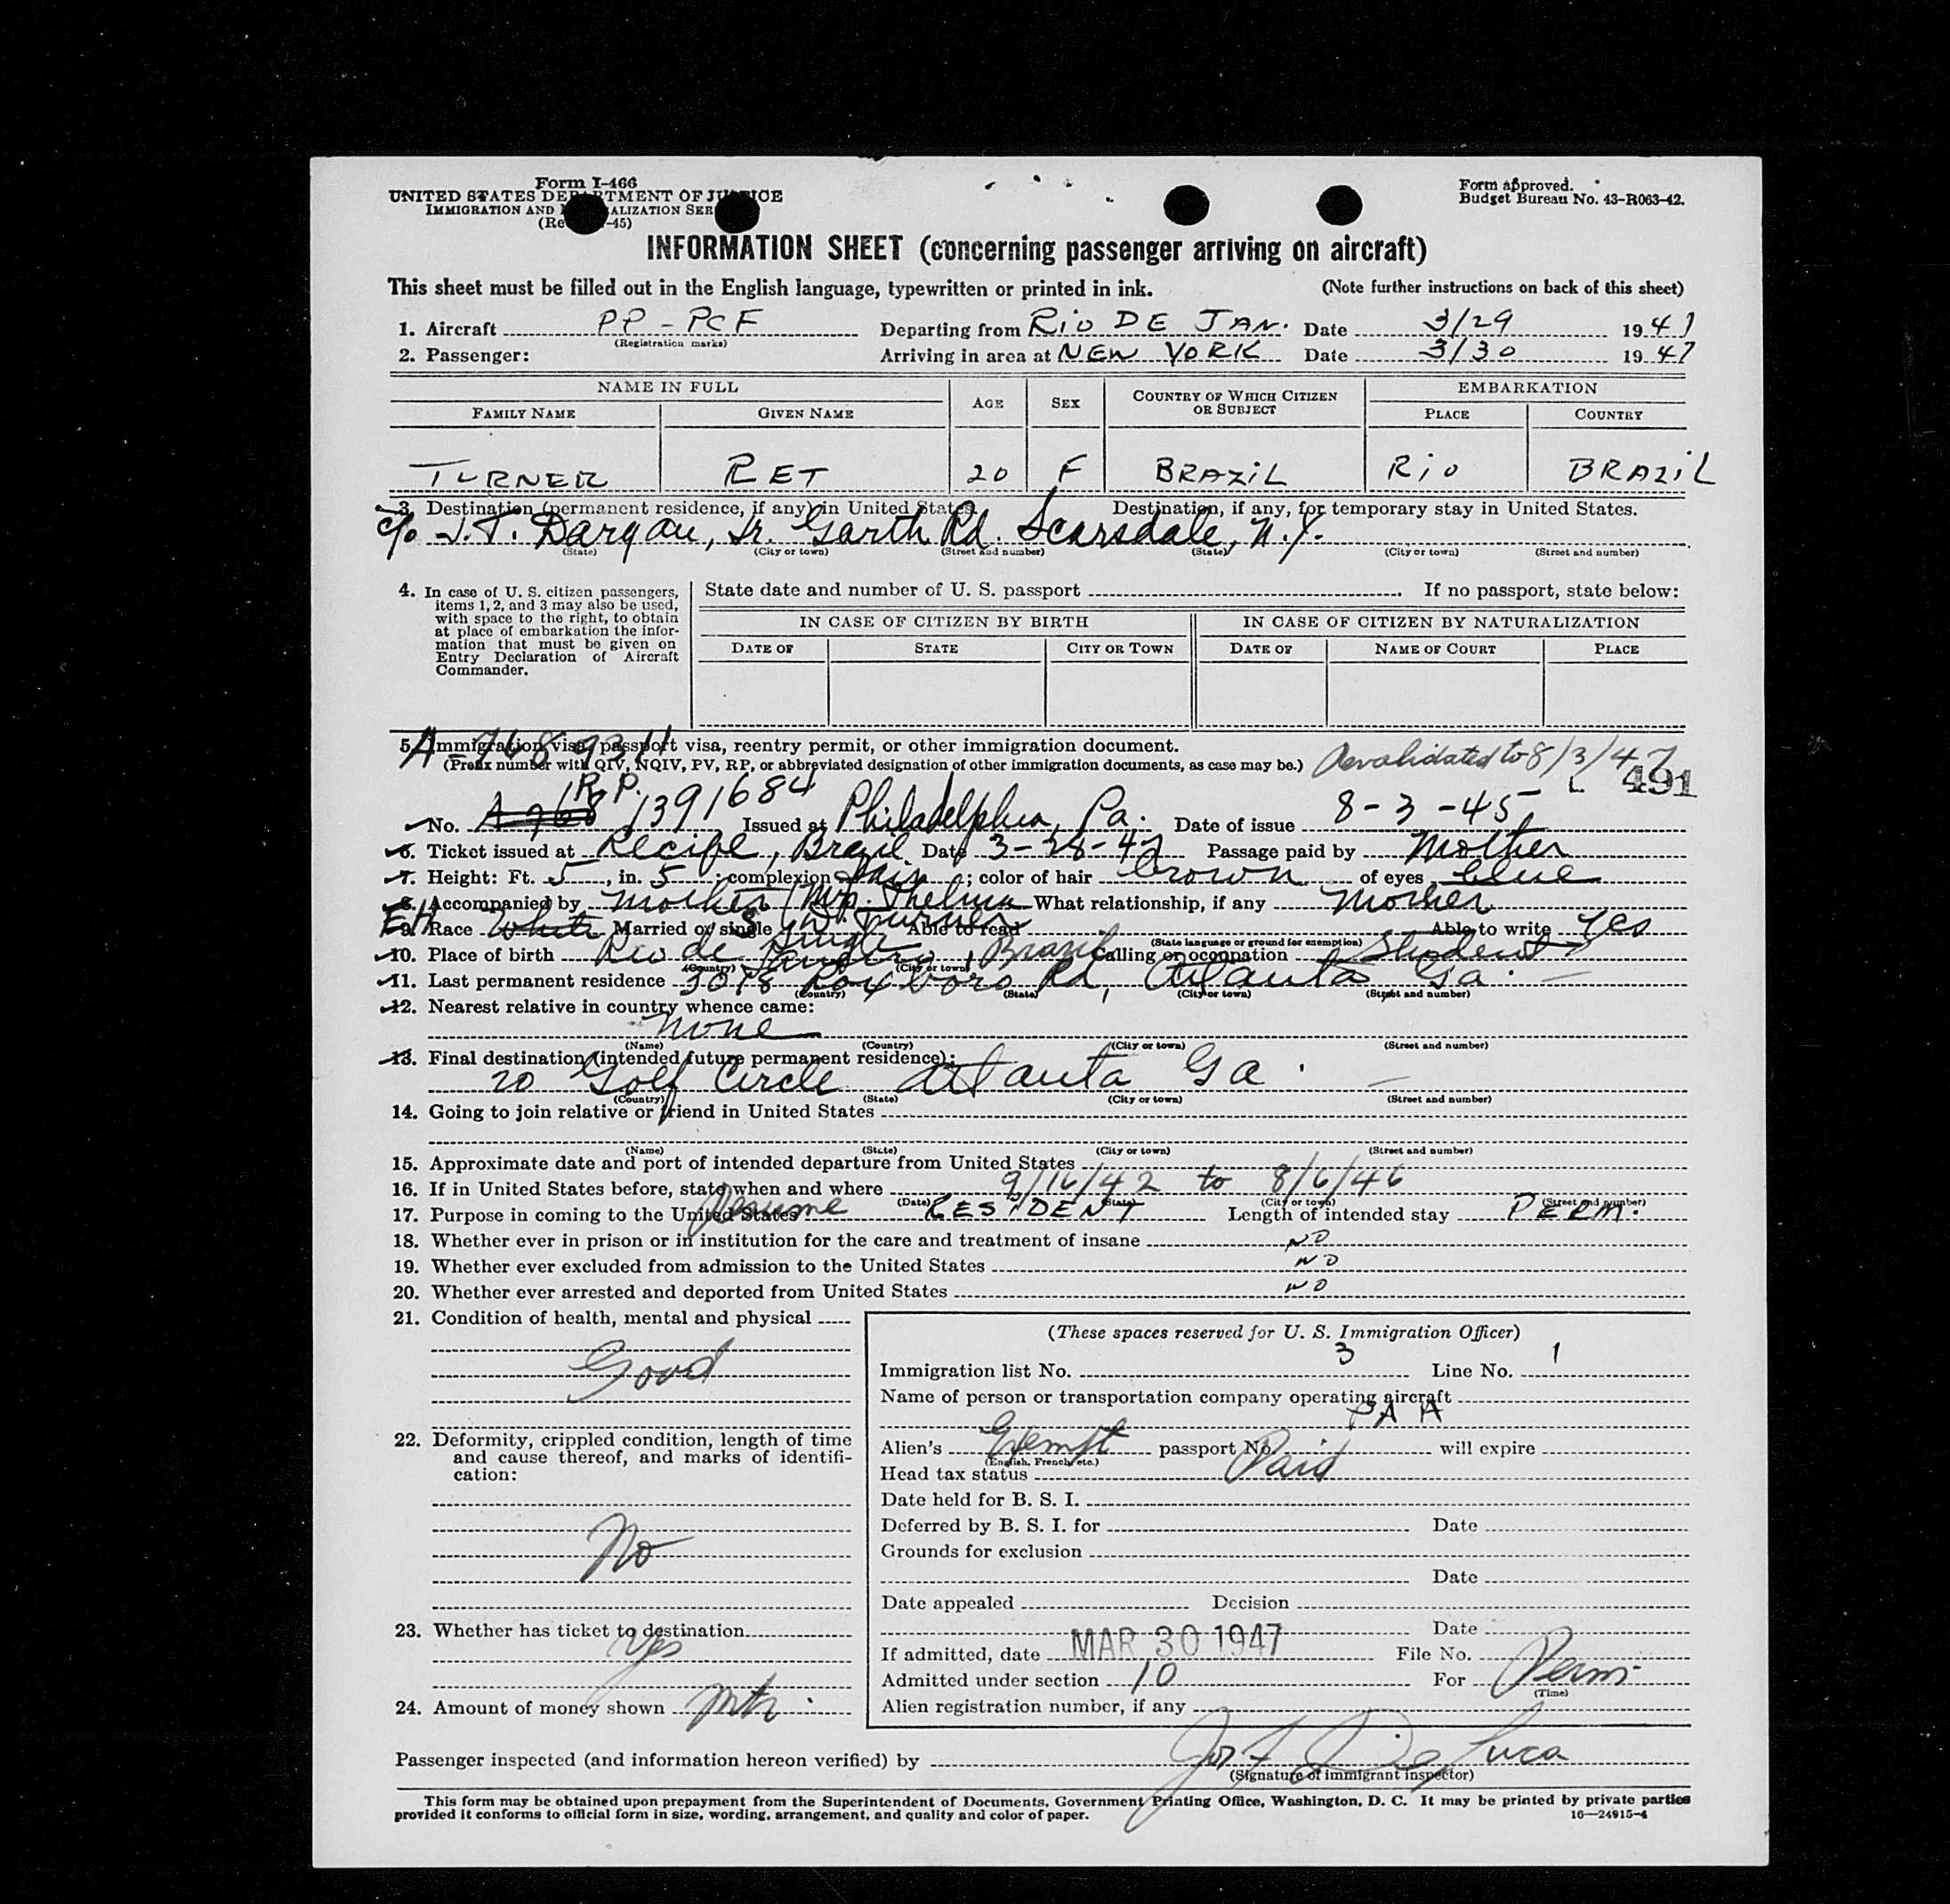 Form I-466
UNITED STATES DEPARTMENT OF JUSTICE
IMMIGRATION AND NATURALIZATION SER
(Re -45)
Form approved.
Budget Bureau No. 43-R063-42.
INFORMATION SHEET (concerning passenger arriving on aircraft)
This sheet must be filled out in the English language, typewritten or printed in ink. (Note further instructions on back of this sheet)
1. Aircraft PP-PCF Departing from RIO DE JAN. Date 3/29 1947
(Registration marks)
2. Passenger: Arriving in area at NEW YORK Date 3/30 1947
NAME IN FULL AGE SEX COUNTRY OF WHICH CITIZEN OR SUBJECT EMBARKATION
FAMILY NAME GIVEN NAME PLACE COUNTRY
TURNER RET 20 F BRAZIL RIO BRAZIL
3. Destination (permanent residence, if any) in United States. Destination, if any, for temporary stay in United States.
c/o J.T. Dargan, Jr. Garth Rd. Scarsdale, N.Y.
(State) (City or town) (Street and number) (State) (City or town) (Street and number)
4. In case of U. S. citizen passengers, items 1, 2, and 3 may also be used, with space to the right, to obtain at place of embarkation the information that must be given on Entry Declaration of Aircraft Commander.
State date and number of U. S. passport If no passport, state below:
IN CASE OF CITIZEN BY BIRTH IN CASE OF CITIZEN BY NATURALIZATION
DATE OF STATE CITY OR TOWN DATE OF NAME OF COURT PLACE
5. Immigration visa, passport visa, reentry permit, or other immigration document.
(Prefix number with QIV, NQIV, PV, RP, or abbreviated designation of other immigration documents, as case may be.) Revalidated to 8/3/47
491
R.P.
No. A-768 1391684 Issued at Philadelphia, Pa. Date of issue 8-3-45
6. Ticket issued at Recife, Brazil Date 3-28-47 Passage paid by Mother
7. Height: Ft. 5, in. 5; complexion fair; color of hair brown of eyes blue
8. Accompanied by mother (Mrs. Thelma What relationship, if any Mother
W. Turner
9. Race White Married or single S Able to read Able to write Yes
single (State language or ground for exemption)
10. Place of birth Rio de Janeiro, Brazil Calling or occupation Student
(Country) (City or town)
11. Last permanent residence 3078 Roxboro Rd, Atlanta Ga.
(Country) (State) (City or town) (Street and number)
12. Nearest relative in country whence came:
none
(Name) (Country) (City or town) (Street and number)
13. Final destination (intended future permanent residence):
20 Golf Circle Atlanta Ga.
(Country) (State) (City or town) (Street and number)
14. Going to join relative or friend in United States
(Name) (State) (City or town) (Street and number)
15. Approximate date and port of intended departure from United States
16. If in United States before, state when and where 9/16/42 to 8/6/46
(Date) (State) (City or town) (Street and number)
17. Purpose in coming to the United States Resume RESIDENT Length of intended stay PERM.
18. Whether ever in prison or in institution for the care and treatment of insane NO
19. Whether ever excluded from admission to the United States NO
20. Whether ever arrested and deported from United States NO
21. Condition of health, mental and physical
Good
22. Deformity, crippled condition, length of time and cause thereof, and marks of identification:
No
23. Whether has ticket to destination
Yes
24. Amount of money shown
(These spaces reserved for U. S. Immigration Officer)
Immigration list No. 3 Line No. 1
Name of person or transportation company operating aircraft
PAA
Alien's Exempt passport No. will expire
(English, French, etc.)
Head tax status Paid
Date held for B. S. I.
Deferred by B. S. I. for Date
Grounds for exclusion
Date
Date appealed Decision
Date
If admitted, date MAR 30 1947 File No.
Admitted under section 10 For Perm.
(Time)
Alien registration number, if any
Passenger inspected (and information hereon verified) by
(Signature of immigrant inspector)
This form may be obtained upon prepayment from the Superintendent of Documents, Government Printing Office, Washington, D. C. It may be printed by private parties
provided it conforms to official form in size, wording, arrangement, and quality and color of paper. 16—24915-4